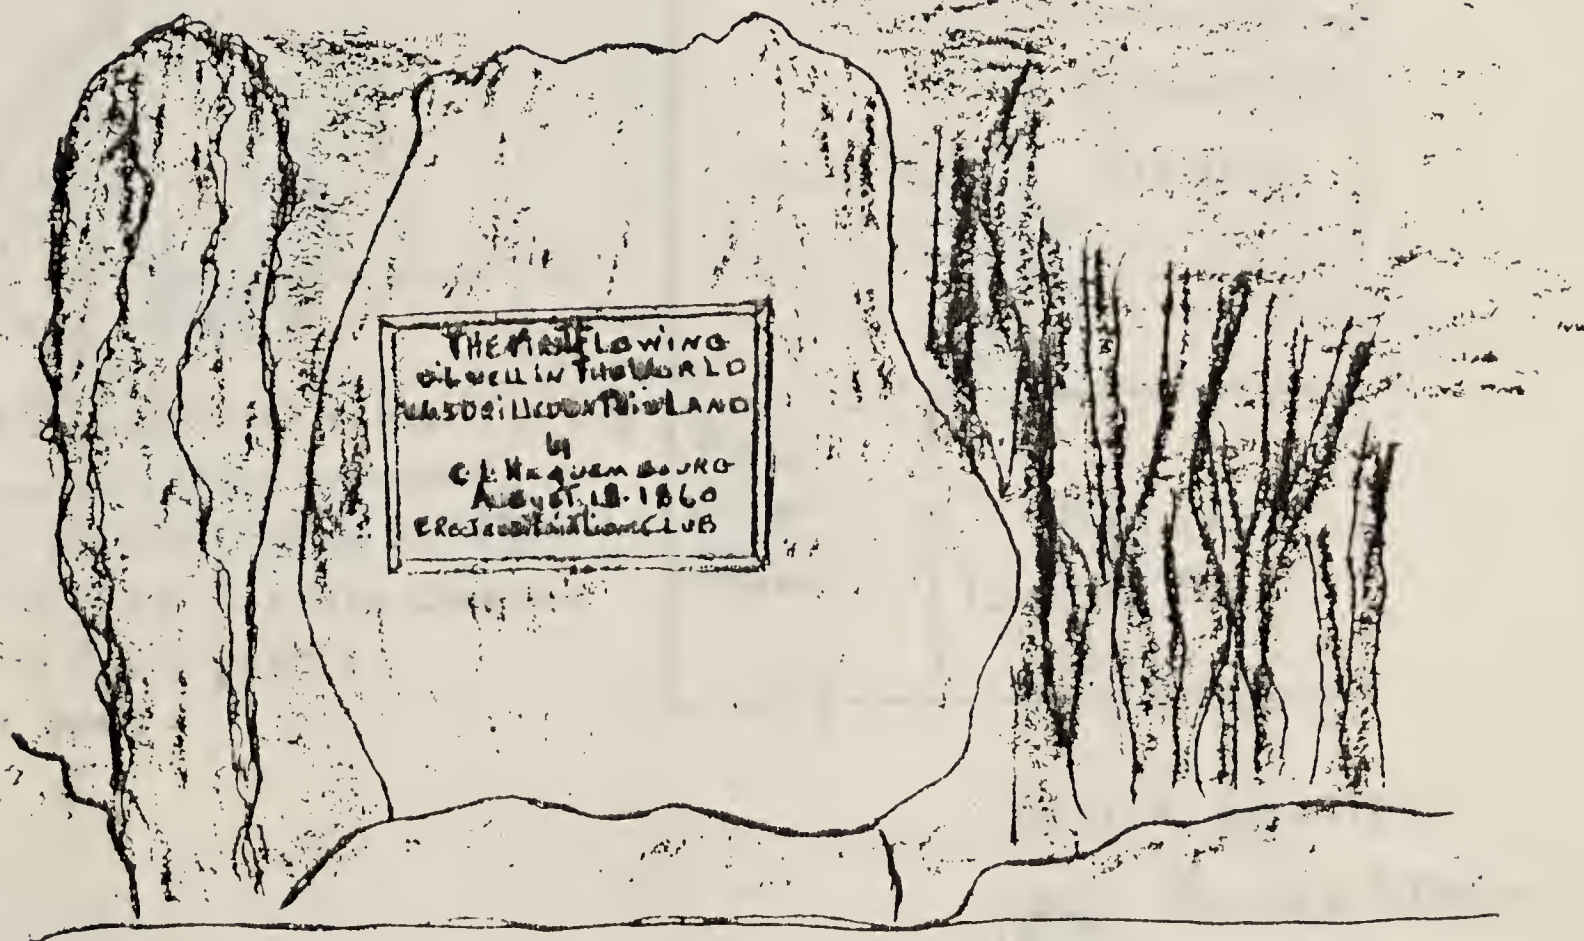 THE FIRST FLOWING
OIL WELL IN THE WORLD
WAS DRILLED ON THIS LAND
by
C L HEQUEMBOURG
AUGUST 1860
ERECTED CLUB